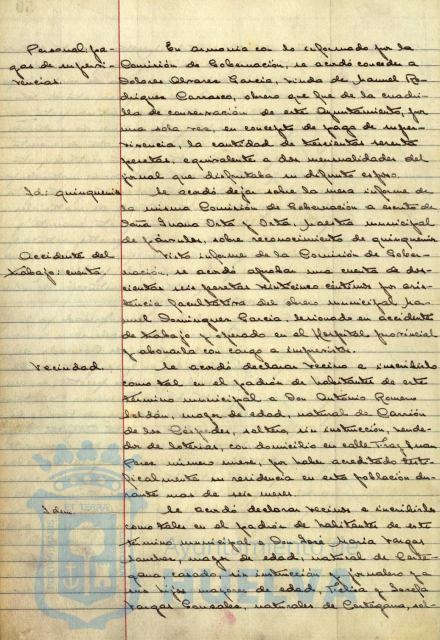 Personal: pa-
gas de supervi-
vencias.
En armonía con lo informado por la
Comisión de Gobernación, se acordó conceder a
Dolores Alvarez García, viuda de Manuel Ro-
dríguez Carrasco, obrero que fue de la cuadri-
lla de conservación de este Ayuntamiento, por
una sola vez, en concepto de paga de super-
vivencia, la cantidad de trescientas sesenta
pesetas, equivalente a dos mensualidades del
jornal que disfrutaba su difunto esposo.
Id: quinquenio
Se acordó dejar sobre la mesa informe de
la misma Comisión de Gobernación a escrito de
Doña Juana Orta y Orta, Maestra municipal
de párvulos, sobre reconocimiento de quinquenio.
Accidente del
trabajo: cuenta.
Visto informe de la Comisión de Gober-
nación, se acordó aprobar una cuenta de dos-
cientas seis pesetas veinticinco céntimos por asis-
tencia facultativa del obrero municipal Ma-
nuel Domínguez García, lesionado en accidente
de trabajo y operado en el Hospital provincial
y abonarla con cargo a imprevistos.
Vecindad.
Se acordó declarar vecino e inscribirlo
como tal en el padrón de habitantes de este
término municipal a Don Antonio Romero
mayor de edad, natural de Carrión
de los Céspedes, soltero, sin instrucción, vende-
dor de loterías, con domicilio en calle Fray Juan
Pérez número nueve, por haber acreditado testi-
ficalmente su residencia en esta población du-
rante mas de seis meses.
Idem.
Se acordó declarar vecinos e inscribirlos
como tales en el padrón de habitantes de este
término municipal a Don José María Vargas
Sánchez, mayor de edad, natural de Corte-
gana, casado, sin instrucción y jornalero y a
sus hijos mayores de edad, Felisa y Teresa
Vargas González, naturales de Cortegana, sol-